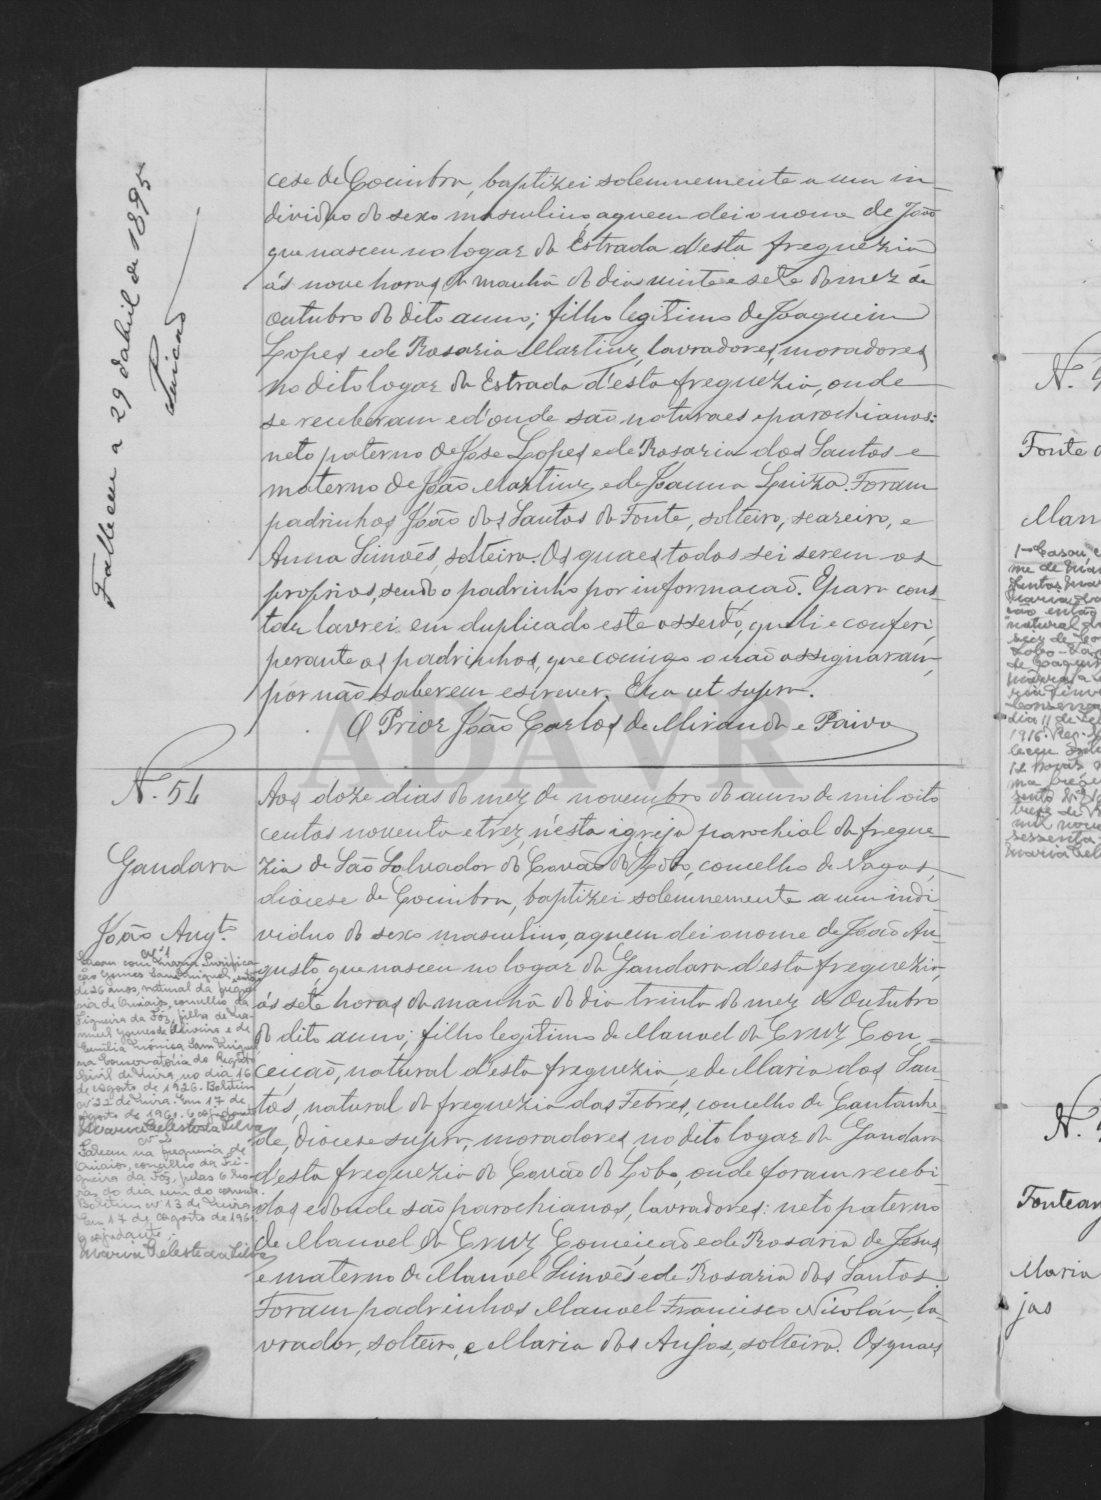 Falleceu a 29 dabril de 1895
Paiva
cese de Coimbra, baptizei solemnemente a um in-
dividuo do sexo masculino aquem dei o nome de João
que nasceu no logar da Estrada d'esta freguezia
ás nove horas da manhã do dia vinte e sete do mez de
outubro do dito anno; filho legitimo de Joaquim
Lopes e de Rosaria Martins, lavradores, moradores
no dito logar da Estrada d'esta freguezia, onde
se receberam e d'onde são naturaes e parochianos:
neto paterno de José Lopes e de Rosaria dos Santos e
materno de João Martins e de Joanna Luiza. Foram
padrinhos João dos Santos da Fonte, solteiro, seareiro, e
Anna Simões, solteira. Os quaes todos sei serem os
proprios, sendo o padrinho por informação. E para cons-
tar lavrei em duplicado este assento, que li e conferi
perante os padrinhos, que comigo o não assignaram,
por não saberem escrever. Era ut supra.
O Prior João Carlos de Miranda e Paiva
ADAVR
N. 54
Gandara
João Augto
Nº 1
Casou com Maria Purifica-
ção Gomes Sam Miguel, então
de 26 anos, natural da fregue-
sia de Quiaios, concelho da
Figueira da Foz, filha de Ma-
nuel Gomes de Oliveira e de
Emilia Mónica Sam Miguel
na Conservatória do Registo
Civil de Mira, no dia 16
de agosto de 1926. Boletim
nº 22 de Mira. Em 17 de
agosto de 1961. O ajudante
Maria Celeste da Silva
Nº 2
Faleceu na freguesia de
Quiaios, concelho da Fi-
gueira da Foz, pelas 6 ho-
ras do dia um do corrente.
Boletim nº 13 de Mira.
Em 17 de agosto de 1961.
O ajudante,
Maria Celeste da Silva
Aos doze dias do mez de novembro do anno de mil oito
centos noventa e trez, n'esta igreja parochial da fregue-
zia de São Salvador do Covão do Lobo, concelho de Vagos,
diocese de Coimbra, baptizei solemnemente a um indi-
viduo do sexo masculino, aquem dei o nome de João Au-
gusto, que nasceu no logar da Gandara d'esta freguezia,
ás sete horas da manhã do dia trinta do mez de Outubro
do dito anno; filho legitimo de Manoel da Cruz Con-
ceicão, natural d'esta freguezia, e de Maria dos San-
tos, natural da freguezia das Febres, concelho de Cantanhe-
de, diocese supra, moradores no dito logar da Gandara
d'esta freguezia do Covão do Lobo, onde foram recebi-
dos e d'onde são parochianos, lavradores: neto paterno
de Manoel da Cruz Conceicão e de Rosaria de Jesus
e materno de Manoel Simões e de Rosaria dos Santos.
Foram padrinhos Manoel Francisco Nicoláu, la-
vrador, solteiro, e Maria dos Anjos, solteira. Os quaes
N.
Fonte
Man
1º Casou
N.
Fontean
Maria
jos